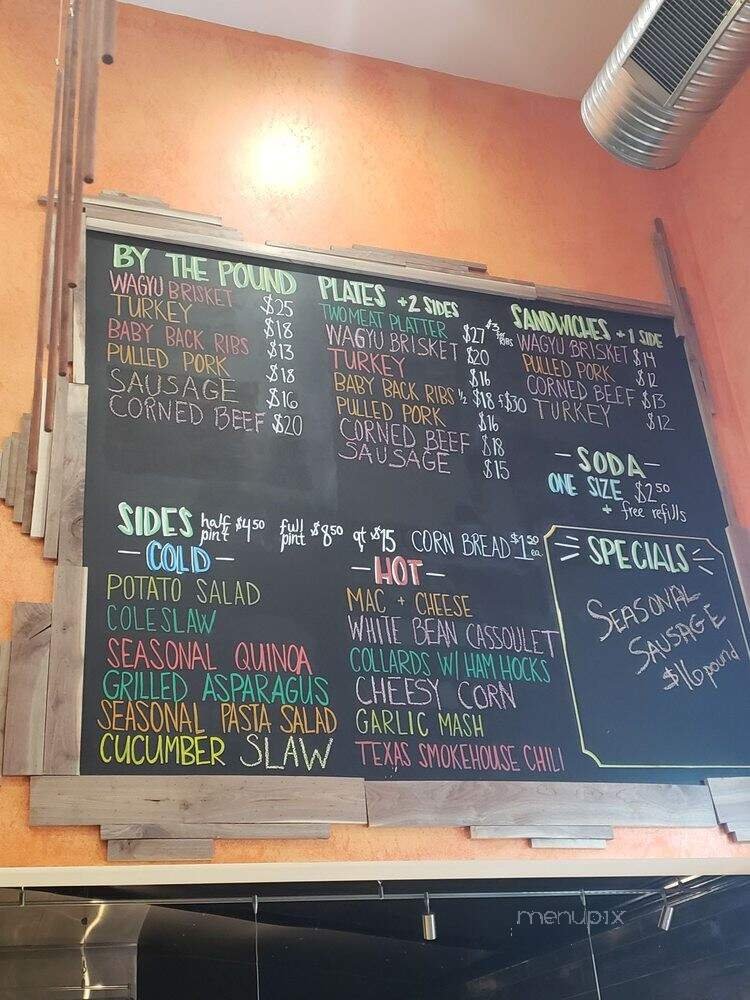 BY THE POUND
WAGYU BRISKET $25
TURKEY $18
BABY BACK RIBS $13
PULLED PORK $18
SAUSAGE $16
CORNED BEEF $20
PLATES +2 SIDES
TWO MEAT PLATTER $27 $3 for RIBS
WAGYU BRISKET $20
TURKEY $16
BABY BACK RIBS ½ $18 f $30
PULLED PORK $16
CORNED BEEF $18
SAUSAGE $15
SANDWICHES +1 SIDE
WAGYU BRISKET $14
PULLED PORK $12
CORNED BEEF $13
TURKEY $12
-SODA-
ONE SIZE $2.50
+ free refills
SIDES half pint $4.50 full pint $8.50 qt $15 CORN BREAD $1.50 ea.
-COLD-
POTATO SALAD
COLESLAW
SEASONAL QUINOA
GRILLED ASPARAGUS
SEASONAL PASTA SALAD
CUCUMBER SLAW
-HOT-
MAC + CHEESE
WHITE BEAN CASSOULET
COLLARDS W/ HAM HOCKS
CHEESY CORN
GARLIC MASH
TEXAS SMOKEHOUSE CHILI
SPECIALS
SEASONAL
SAUSAGE
$16 pound
menupix